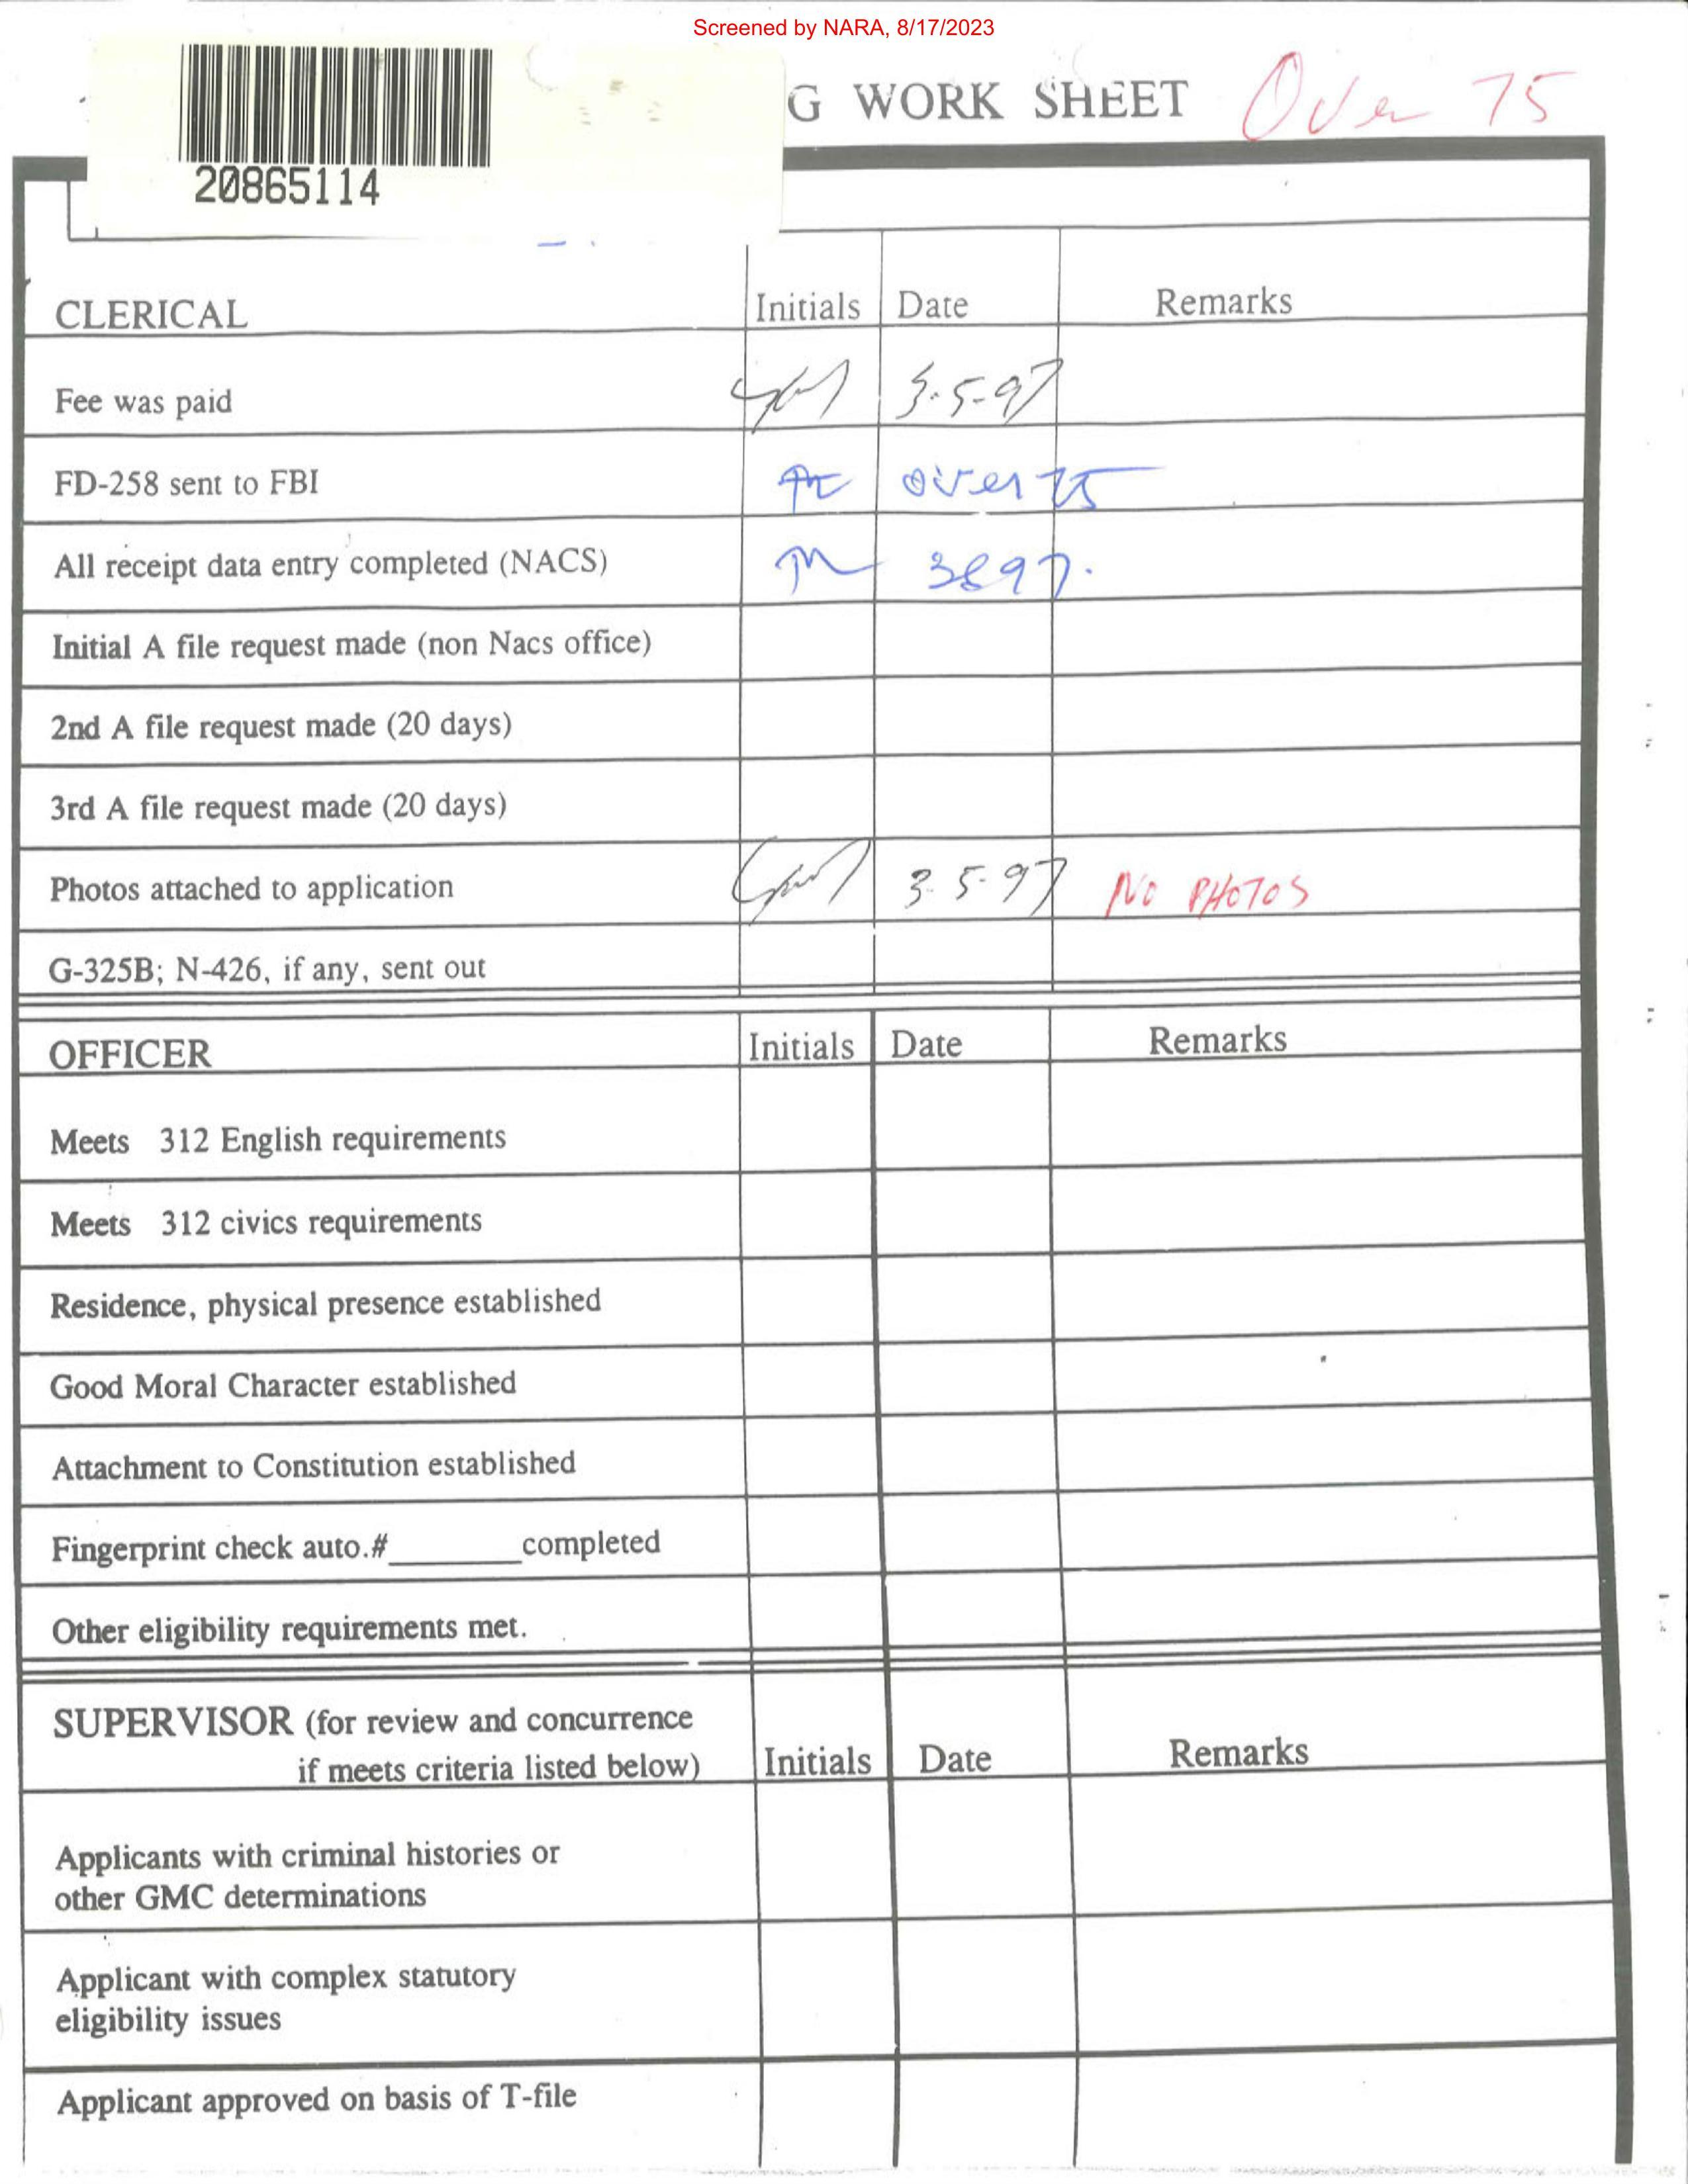 Screened by NARA, 8/17/2023
G WORK SHEET Over 75
20865114
CLERICAL Initials Date Remarks
Fee was paid 3-5-97
FD-258 sent to FBI over 75
All receipt data entry completed (NACS) 3897.
Initial A file request made (non Nacs office)
2nd A file request made (20 days)
3rd A file request made (20 days)
Photos attached to application 3-5-97 NO PHOTOS
G-325B; N-426, if any, sent out
OFFICER Initials Date Remarks
Meets 312 English requirements
Meets 312 civics requirements
Residence, physical presence established
Good Moral Character established
Attachment to Constitution established
Fingerprint check auto.#________completed
Other eligibility requirements met.
SUPERVISOR (for review and concurrence
if meets criteria listed below) Initials Date Remarks
Applicants with criminal histories or
other GMC determinations
Applicant with complex statutory
eligibility issues
Applicant approved on basis of T-file